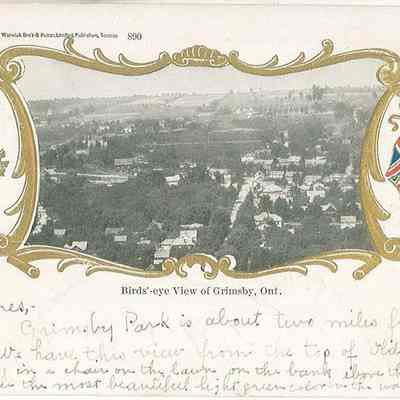 Warwick Bro's & Rutter, Limited, Publishers, Toronto 890
Birds'-eye View of Grimsby, Ont.
Grimsby Park is about two miles
have this view from the top of
in a chair on the lawn on the bank above
the most beautiful light green color in the